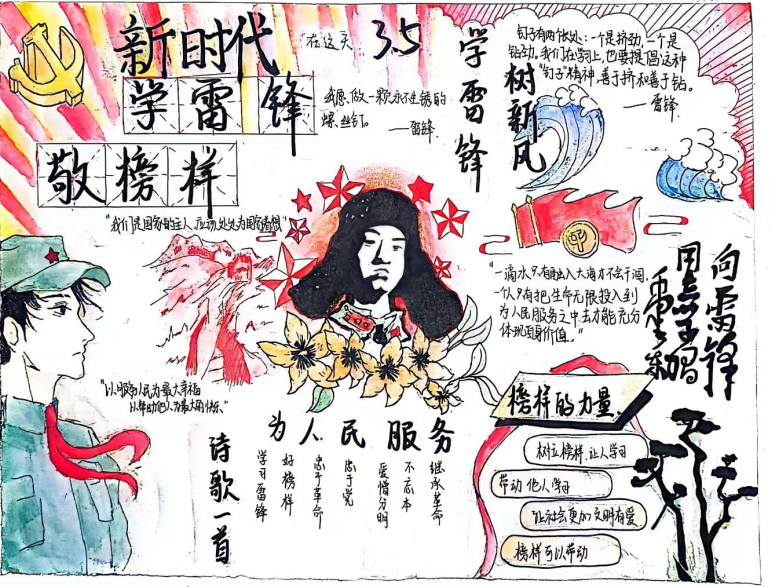 新时代
学雷锋
敬榜样
"在这天：3.5
我愿做一颗永不生锈的
螺丝钉。
——雷锋
学雷锋
树新风
钉子有两个长处：一个是挤劲，一个是
钻劲。我们在学习上，也要提倡这种
"钉子"精神，善于挤和善于钻。
——雷锋
"我们是国家的主人，应该处处为国家着想"
"一滴水只有放入大海才不会干涸，
一个人只有把生命无限投入到
为人民服务之中去才能充分
体现自身价值。"
向雷锋
"以服务人民为最大幸福
以帮助他人为最大的快乐"
为人民服务
诗歌一首
学习雷锋
好榜样
忠于革命
忠于党
爱憎分明
不忘本
继承革命
榜样的力量
树立榜样，让人学习
带动他人学习
让社会更加文明有爱
榜样可以带动